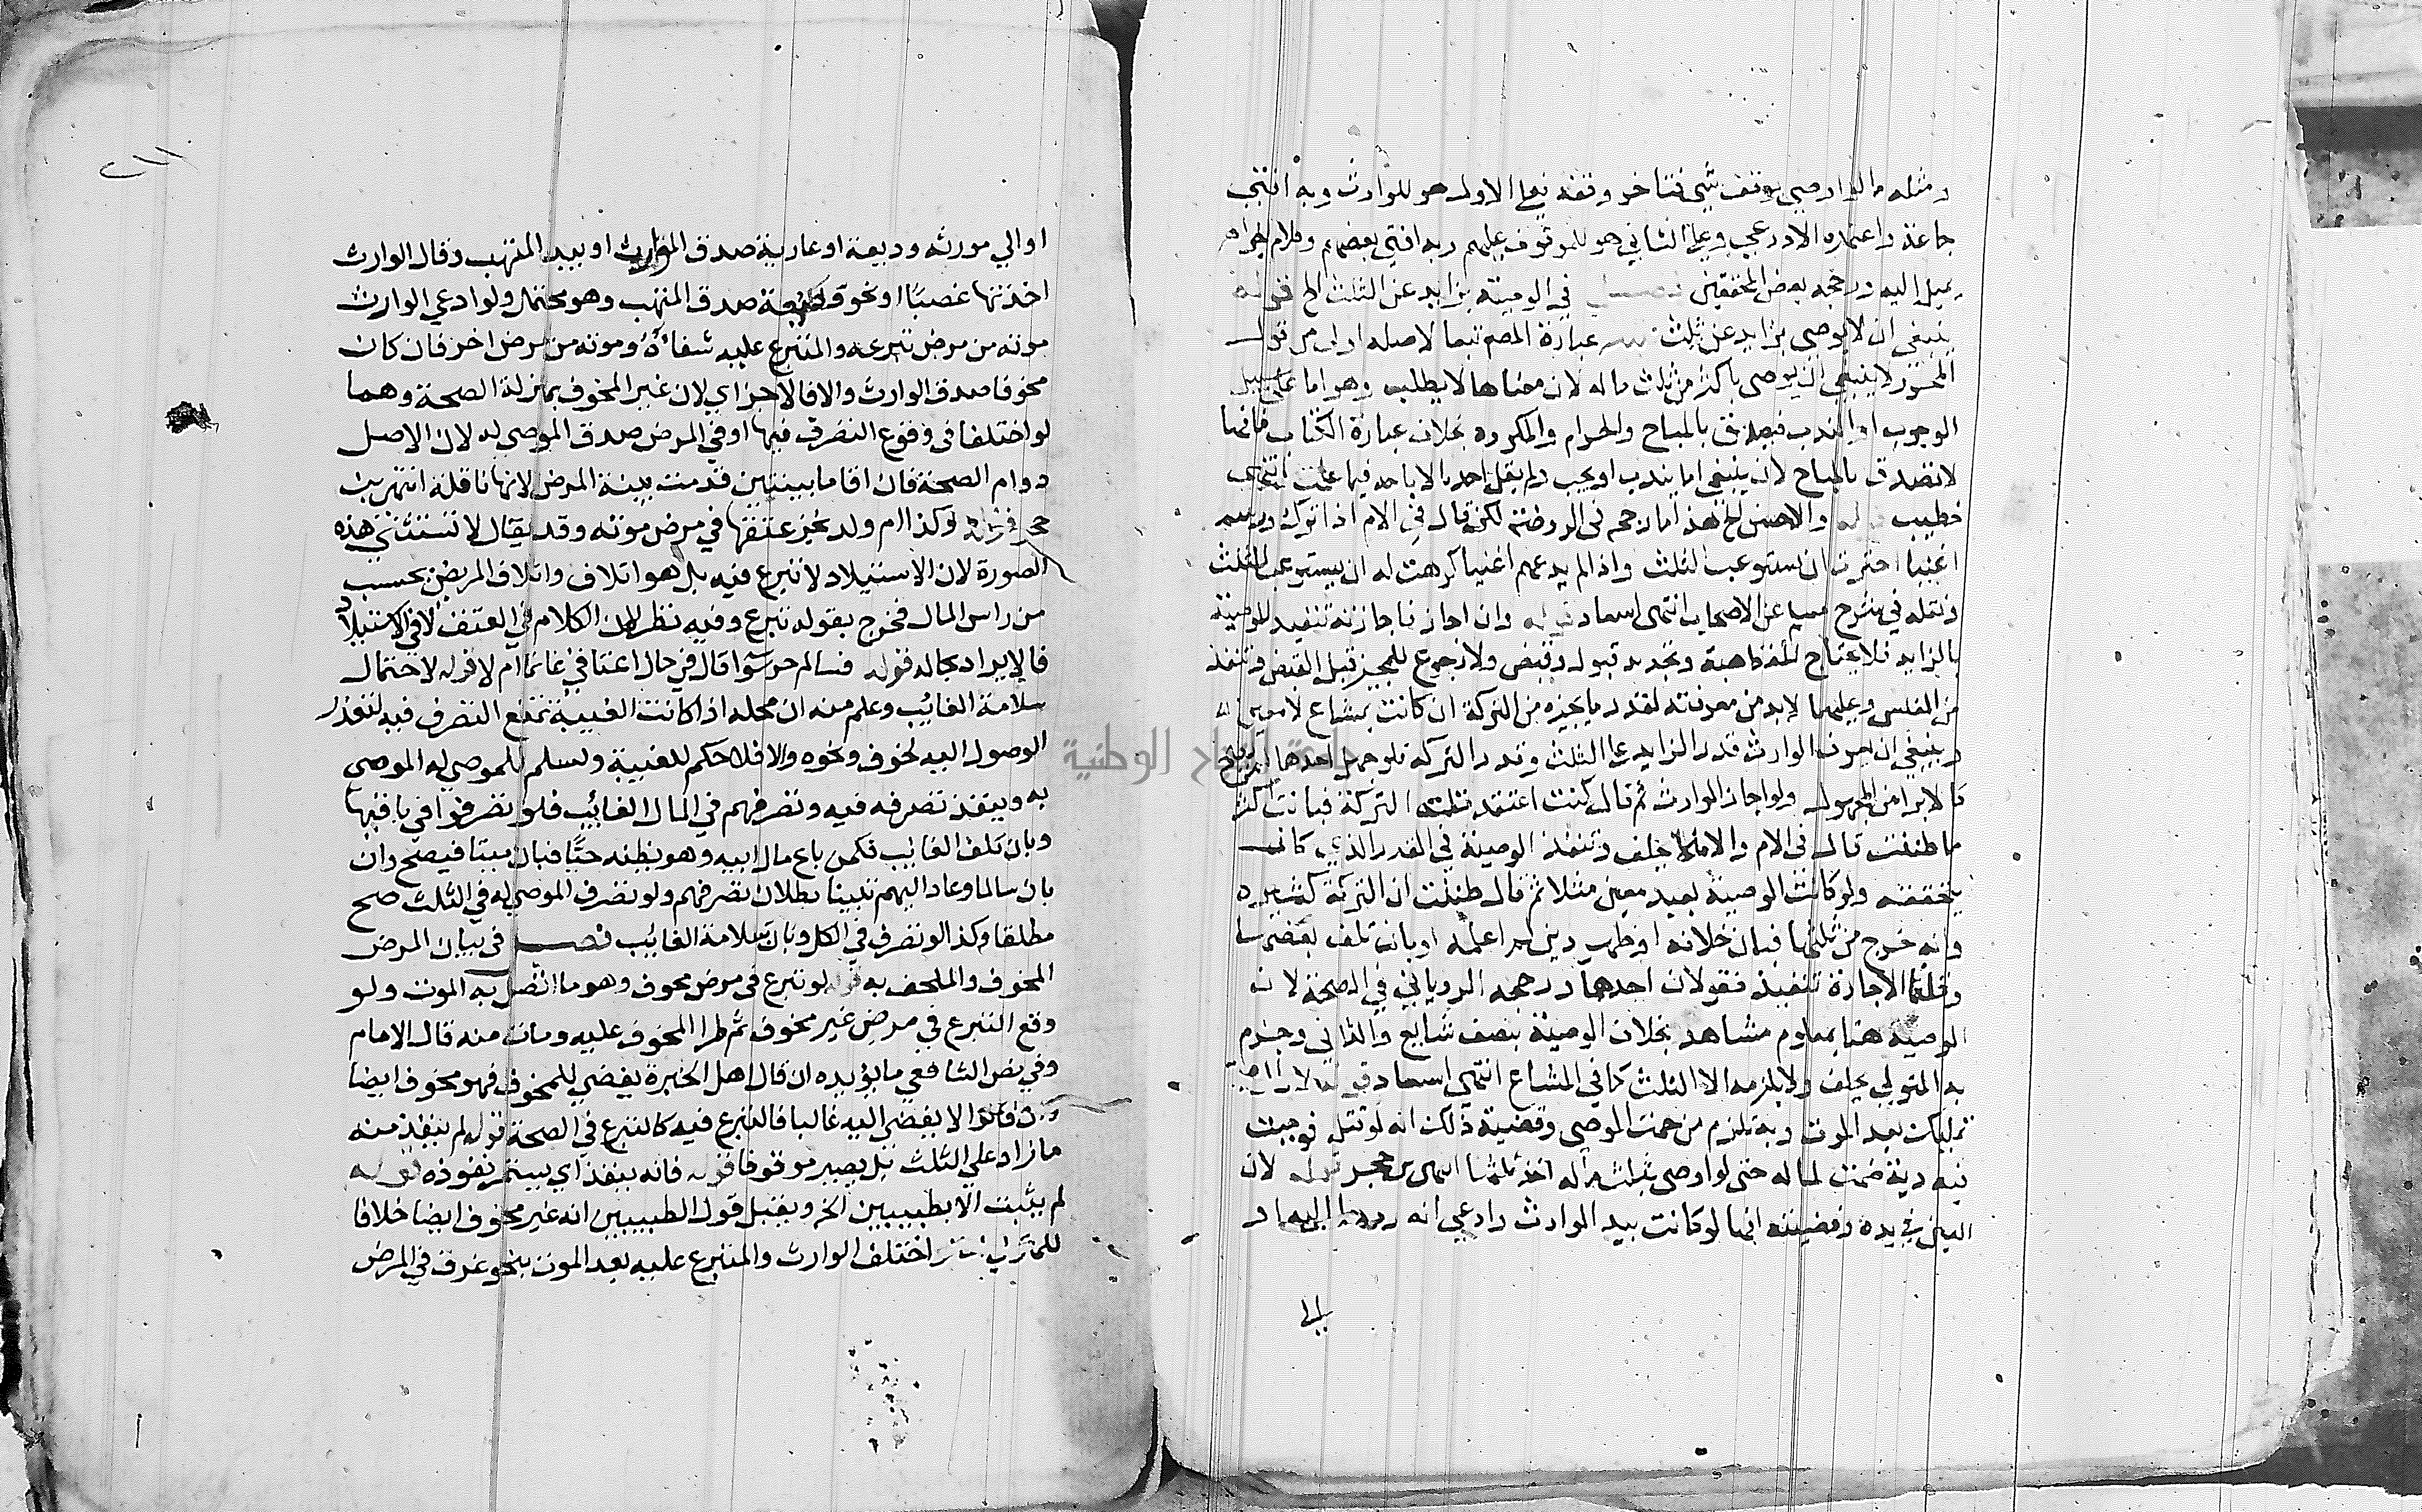 ومثله ما لو اوصي بوقف شي فتاخر وقفه فعلي الاول هو للوارث وبه افتي
جماعة واعتمده الاذرعي وعلي الثاني هو للموقوف عليهم وبه افتي بعضهم وكلام
يميل اليه ورجحه بعض المحققين فصل في الوصية بزايد عن الثلث الخ قوله
ينبغي ان لا يوصي بزايد عن ثلث عبارة المصم تبعا لاصله اولي من قول
المحرر لا ينبغي ان يوصي باكثر من ثلث ماله لان معناها لا يطلب وهو اما علي سبيل
الوجوب او الندب فيصدق بالمباح والحرام والمكروه بخلاف عبارة الكتاب فانها
لا تصدق بالمباح لان ينبغي اما يندب او يجب ولم يقل احد بالاباحة فيما علمت انتهي
خطيب قوله والاحسن الخ هذا ما رجحه في الروضة لكن قال في الام اذا ترك ورثته
اغنيا اخترت ان يستوعب الثلث واذا لم يدعهم اغنيا كرهت له ان يستوعب الثلث
ونقله في شرح مسلم عن الاصحاب انتهي اسعاد قوله وان اجاز فاجازته تنفيذ للوصية
بالزايد فلا يحتاج للفظ هبة وتجديد قبول وقبض ولا رجوع للمجيز قبل القبض وتنفذ
من المفلس وعليهما لابد من معرفته لقدر ما يجيزه من التركة ان كانت بمشاع لا معين
وينبغي ان يعرف الوارث قدر الزايد علي الثلث وقدر التركة فلو جهل احدهما لم يصح
كالابرا من المجهول ولو اجاز الوارث ثم قال كنت اعتقد قلت التركة فبانت اكثر
ما ظننت قال في الام والاملا يحلف وتنفذ الوصية في القدر الذي كان
يتحققه ولو كانت الوصية بعبد معين مثلا ثم قال ظننت ان التركة كثيرة
وانه خرج من ثلثها فبان خلافه او ظهر دين لم اعلمه او بان تلف بعضها
وقلنا الاجازة تنفيذ فقولان احدهما ورجحه الروياني في الصحة لان
الوصية هنا بمعلوم مشاهد بخلاف الوصية بنصف شايع والثاني وجزم
به المتولي يحلف ولا يلزمه الا الثلث كما في المشاع انتهي اسعاد قوله
تمليك بعد الموت وبه تلزم من جهت الموصي وقضية ذلك انه لو قتل فوجبت
فيه دية ضمت لماله حتي لو اوصي بثلث ماله اخذ ثلثها انتهي بن حجر قوله لان
العين في يده وقضيته انها لو كانت بيد الوارث وادعي انه ردها اليه او
او الي مورثه وديعة او عارية صدق الوارث او بيد المتهب وقال الوارث
اخذتها غصبا او نحو وديعة صدق المتهب وهو محتمل ولو ادعي الوارث
موته من مرض تبرعه والمتبرع عليه شفاءه وموته من مرض اخر فان كان
مخوفا صدق الوارث والا فالاخر اي لان غير المخوف بمنزلة الصحة وهما
لو اختلفا في وقوع التصرف فيها او في المرض صدق الموصي له لان الاصل
دوام الصحة فان اقاما بينتين قدمت بينة المرض لانها ناقلة انتهي بن
حجر قوله وكذا ام ولد نجز عتقها في مرض موته وقد يقال لا تستثني هذه
الصورة لان الاستيلاد لا تبرع فيه بل هو اتلاف واتلاف المريض يحسب
من راس المال فخرج بقوله تبرع وفيه نظر لان الكلام في العتق لا في الاستيلاد
فالايراد بحاله قوله فسالم حر سوا قال في حال اعتاقي غانما ام لا قوله لاحتمال
سلامة الغايب وعلم منه ان محله اذا كانت الغيبة تمنع التصرف فيه لتعذر
الوصول اليه لخوف ونحوه والا فلا حكم للغيبة وتسلم للموصي له الموصي
به وينفذ تصرفه فيه وتصرفهم في المال الغائب فلو تصرفوا في باقيها
وبان تلف الغائب فكمن باع مال ابيه وهو يظنه حيا فبان ميتا فيصح وان
بان سالما وعاد اليهم تبينا بطلان تصرفهم ولو تصرف الموصي له في الثلث صح
مطلقا وكذا لو تصرف في الكل وبان سلامة الغائب فصل في بيان المرض
المخوف والملحق به قوله لو تبرع في مرض مخوف وهو ما اتصل به الموت ولو
وقع التبرع في مرض غير مخوف ثم طرا المخوف عليه ومات منه قال الامام
وفي نص الشافعي ما يؤيده ان قال اهل الخبرة يفضي للمخوف فهو مخوف ايضا
وان قالوا لا يفضي اليه غالبا فالتبرع فيه كالتبرع في الصحة قوله لم ينفذ منه
ما زاد علي الثلث بل يصير موقوفا قوله فانه ينفذ اي يستمر نفوذه قوله
لم يثبت الا بطبيبين الخ ويقبل قول الطبيبين انه غير مخوف ايضا خلافا
اختلف الوارث والمتبرع عليه بعد الموت بنحو غرق في المرض